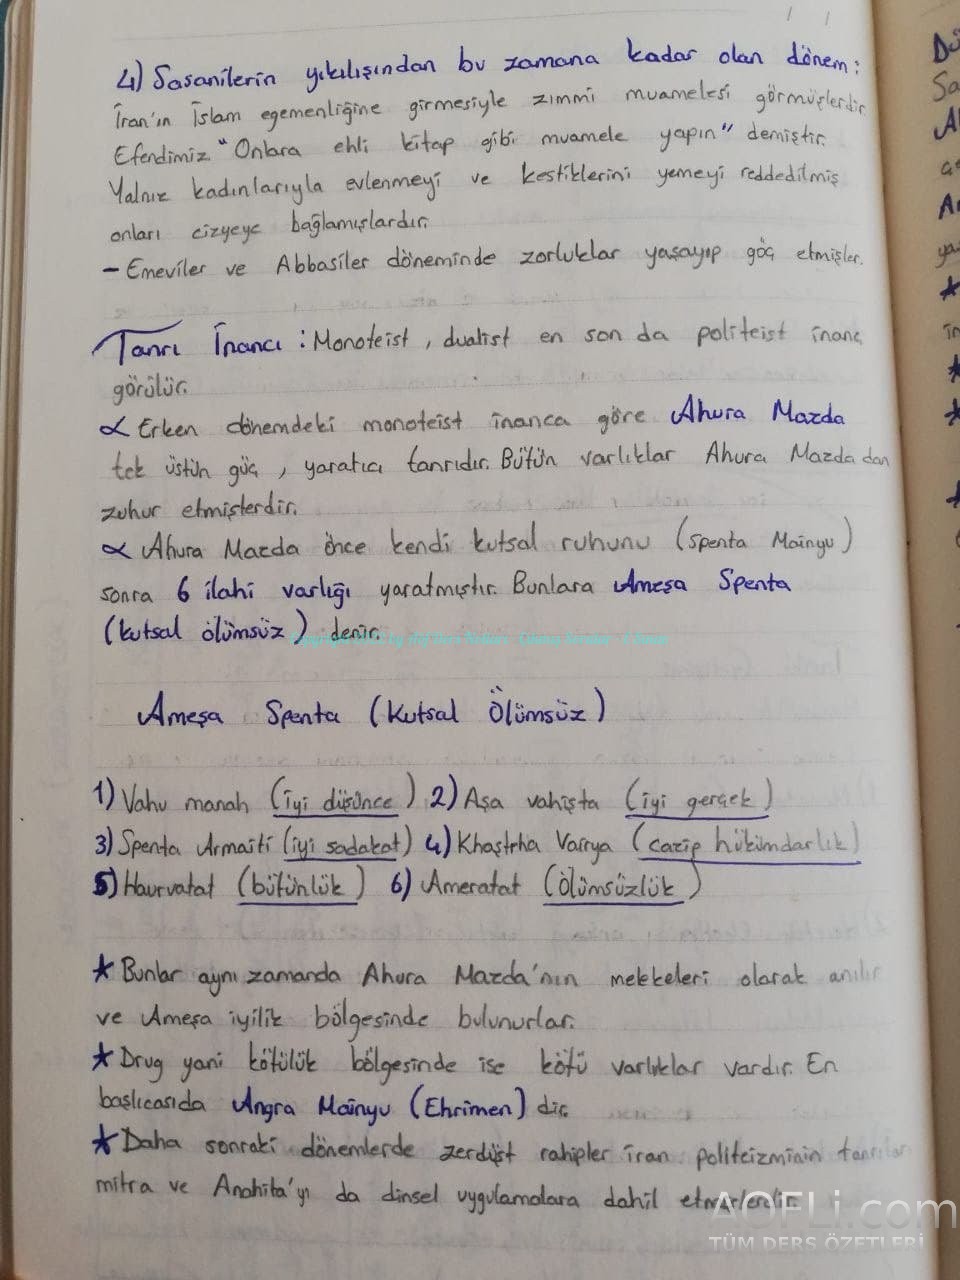 4) Sasanilerin yıkılışından bu zamana kadar olan dönem:
İran'ın İslam egemenliğine girmesiyle zımmi muamelesi görmüşlerdir.
Efendimiz "Onlara ehli kitap gibi muamele yapın" demiştir.
Yalnız kadınlarıyla evlenmeyi ve kestiklerini yemeyi reddedilmiş
onları cizyeye bağlamışlardır.
- Emeviler ve Abbasiler döneminde zorluklar yaşayıp göç etmişler.
Tanrı İnancı : Monoteist, dualist en son da politeist inanç
görülür.
∝ Erken dönemdeki monoteist inanca göre Ahura Mazda
tek üstün güç, yaratıcı tanrıdır. Bütün varlıklar Ahura Mazda dan
zuhur etmişlerdir.
∝ Ahura Mazda önce kendi kutsal ruhunu (spenta Mainyu)
sonra 6 ilahi varlığı yaratmıştır. Bunlara Ameşa Spenta
(kutsal ölümsüz) denir.
Ameşa Spenta (Kutsal Ölümsüz)
1) Vahu manah (iyi düşünce) 2) Aşa vahişta (iyi gerçek)
3) Spenta Armaiti (iyi sadakat) 4) Khaştrha Varrya (cazip hükümdarlık)
5) Haurvatat (bütünlük) 6) Ameratat (ölümsüzlük)
★ Bunlar aynı zamanda Ahura Mazda'nın melekeleri olarak anılır
ve Ameşa iyilik bölgesinde bulunurlar.
★ Drug yani kötülük bölgesinde ise kötü varlıklar vardır. En
başlıcasıda Angra Mainyu (Ehrimen) dir.
★ Daha sonraki dönemlerde zerdüşt rahipler iran politeizminin tanrıları
mitra ve Anahita'yı da dinsel uygulamalara dahil etmişlerdir.
AOFLi.com
TÜM DERS ÖZETLERİ